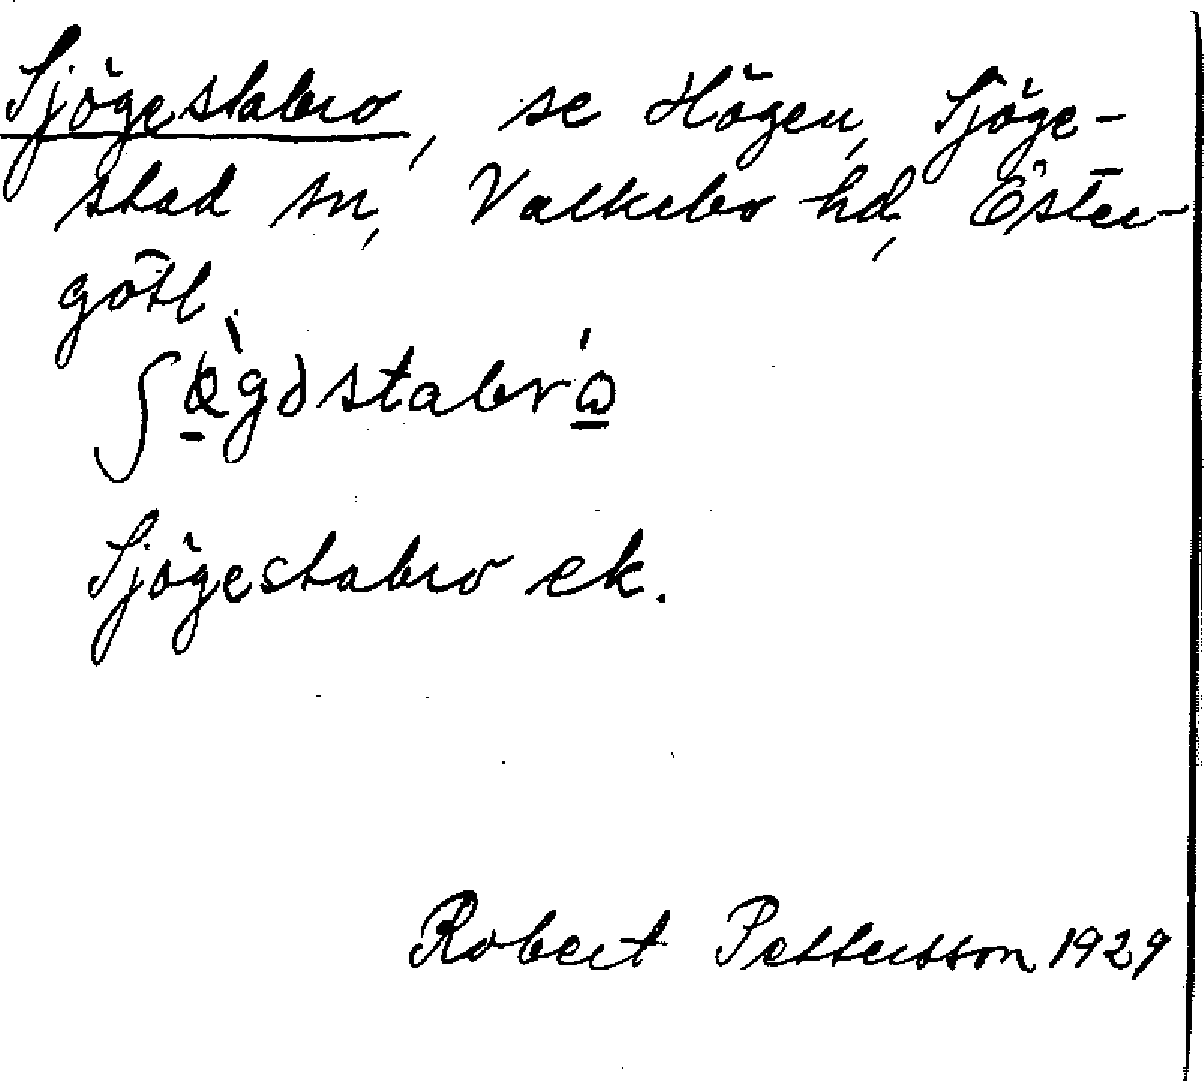 Sjögestabro, se Högen, Sjöge-
stad sn, Valkebo hd, Öster-
götl.
ʃø̠̀gəstabrώ̠
Sjögestabro ek.
Robert Pettersson 1929